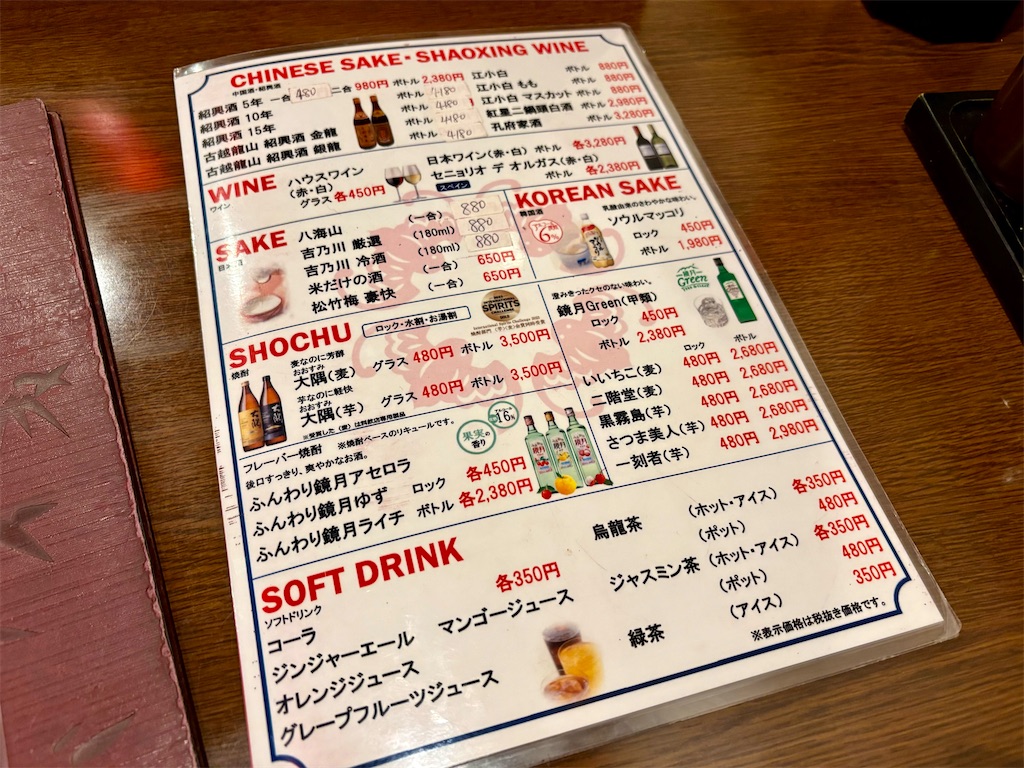 CHINESE SAKE・SHAOXING WINE
中国酒・紹興酒
紹興酒 5年 一合 480 二合 980円 ボトル 2,380円
紹興酒 10年 ボトル 4180
紹興酒 15年 ボトル 4180
古越龍山 紹興酒 金龍 ボトル 4180
古越龍山 紹興酒 銀龍
江小白 ボトル 880円
江小白 もも ボトル 880円
江小白 マスカット ボトル 880円
紅星二鍋頭白酒 ボトル 2,980円
孔府家酒 ボトル 3,280円
WINE
ワイン
ハウスワイン
(赤・白)
グラス 各450円
日本ワイン(赤・白) ボトル 各3,280円
セニョリオ デ オルガス(赤・白)
スペイン ボトル 各2,380円
SAKE
八海山 (一合) 880
吉乃川 厳選 (180ml) 880
吉乃川 冷酒 (180ml) 880
米だけの酒 (一合) 650円
松竹梅 豪快 (一合) 650円
KOREAN SAKE
韓国酒
乳酸由来のさわやかな味わい。
6%
ソウルマッコリ
ロック 450円
ボトル 1,980円
SHOCHU
焼酎
ロック・水割・お湯割
SPIRITS
麦なのに芳醇
おおすみ
大隅(麦) グラス 480円 ボトル 3,500円
芋なのに軽快
おおすみ
大隅(芋) グラス 480円 ボトル 3,500円
フレーバー焼酎 ※焼酎ベースのリキュールです。
後口すっきり、爽やかなお酒。
果実の香り
16%
ふんわり鏡月アセロラ
ふんわり鏡月ゆず
ふんわり鏡月ライチ
ロック 各450円
ボトル 各2,380円
澄みきったクセのない味わい。
鏡月Green(甲類)
鏡月
Green
ロック 450円
ボトル 2,380円
ロック ボトル
いいちこ(麦) 480円 2,680円
二階堂(麦) 480円 2,680円
黒霧島(芋) 480円 2,680円
さつま美人(芋) 480円 2,680円
一刻者(芋) 480円 2,980円
SOFT DRINK
ソフトドリンク
各350円
コーラ
ジンジャーエール
オレンジジュース
グレープフルーツジュース
マンゴージュース
烏龍茶 (ホット・アイス) 各350円
(ポット) 480円
ジャスミン茶 (ホット・アイス) 各350円
(ポット) 480円
緑茶 (アイス) 350円
※表示価格は税抜き価格です。